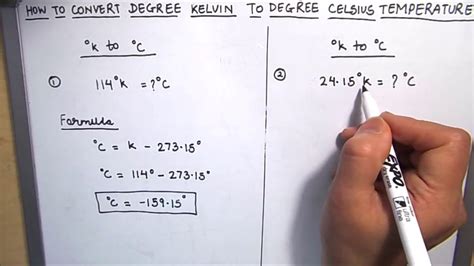 HOW TO CONVERT DEGREE KELVIN TO DEGREE CELSIUS TEMPERATURE
°k to °C
① 114°k = ?°C
Formula
°C = k - 273.15°
°C = 114° - 273.15°
°C = -159.15°
°k to °C
② 24.15°k = ? °C
EXPO